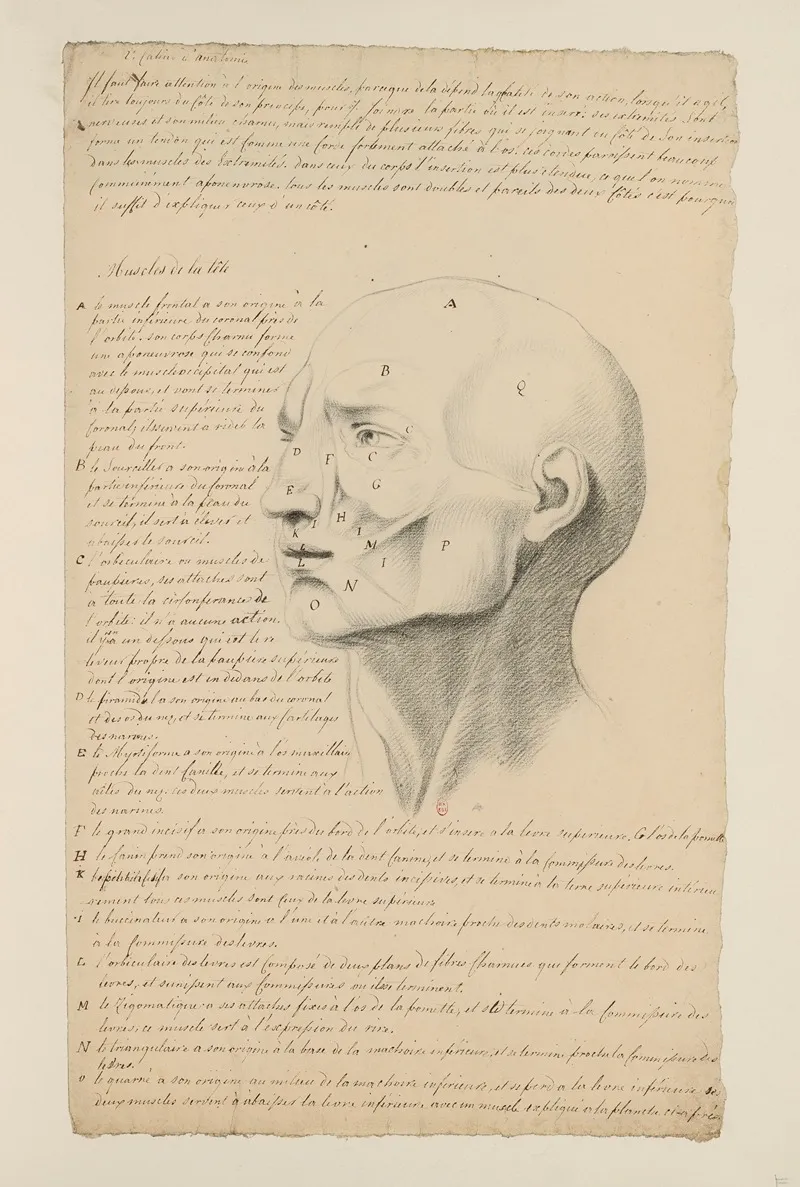 Il faut faire attention à l'origine des muscles, parceque de la dépend la qualité de son action, lorsqu'il agit,
il tire toujours du côté de son principe, pour la partie où il est inseré; ses extremités sont
nerveuses et son milieu charnu, mais remplie de plusieurs fibres qui se joignant du côté de son insertion
forme un tendon qui est comme une corde fortement attaché à l'os. ces cordes paroissent beaucoup
dans les muscles des extremités. dans ceux du corps l'insertion est plus étendue, ce que l'on nomme
communément aponevrose. tous les muscles sont doubles et pareils des deux côtés c'est pourquoi
il suffit d'expliquer ceux d'un côté.
Muscles de la tête
A le muscle frontal a son origine à la
partie inférieure du coronal près de
l'orbite. son corps charnu forme
une aponevrose qui se confond
avec le muscle occipital qui est
au dessous, et vont se terminer
à la partie supérieure du
coronal, ils servent à rider la
peau du front.
B le Sourcillier a son origine à la
partie inférieure du coronal
et se termine à la peau du
sourcil, il sert à élever et
abaisser le sourcil.
C l'orbiculaire ou muscles des
paupières, ses attaches sont
a toute la circonférance de
l'orbite: il n'a aucune action.
il y a un dessous qui est le re
leveur propre de la paupière supérieure
dont l'origine est en dedans de l'orbite
D le piramidal a son origine au bas du coronal
et des os du nez, et se termine aux cartilages
des narines.
E le Myrtiforme a son origine à l'os maxillaire
proche la dent canine, et se termine aux
ailes du nez. les deux muscles servent à l'action
des narines.
F le grand incisif a son origine près du bord de l'orbite, et s'insere a la levre superieure. G l'os de la pomette
H le Canin prend son origine à de la dent Canine, et se termine à la Commissure des levres.
K a son origine aux racines des dents incisives, et se termine à la levre supérieure intérieu
rement tous ces muscles sont ceux de la levre supérieure
I le buccinateur a son origine a l'une et à l'autre machoire proche des dents molaires, et se termine
à la Commissure des levres.
L l'orbiculaire des levres est composé de deux plans de fibres Charnues que forment le bord des
levres, et s'unissent aux Commissures où ils se terminent.
M le Zigomatique a ses attaches fixes à l'os de la pomette, et se termine à la Commissure des
levres; ce muscle sert à l'expression du rire.
N le triangulaire a son origine à la base de la machoire inférieure, et se termine proche la Commissure des
levres.
O le quarré a son origine au milieu de la machoire inférieure, et se perd a la levre inférieure ses
deux muscles servent à abaisser la levre inférieure avec un muscle expliqué a la planche
A
B
Q
C
C
D
F
E
G
H
I
K
I
M
P
L
I
N
O